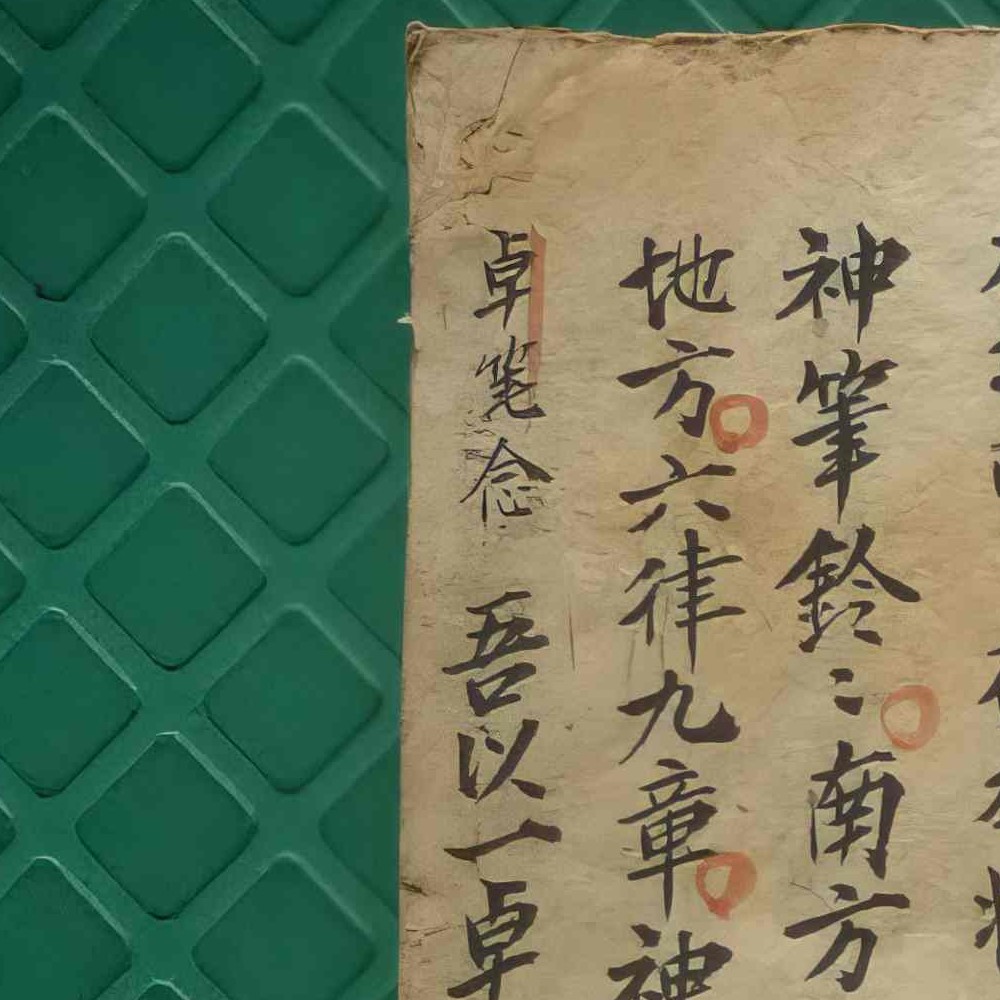 神筆鈴〻南方
地方六律九章神
卓筆念 吾以一卓